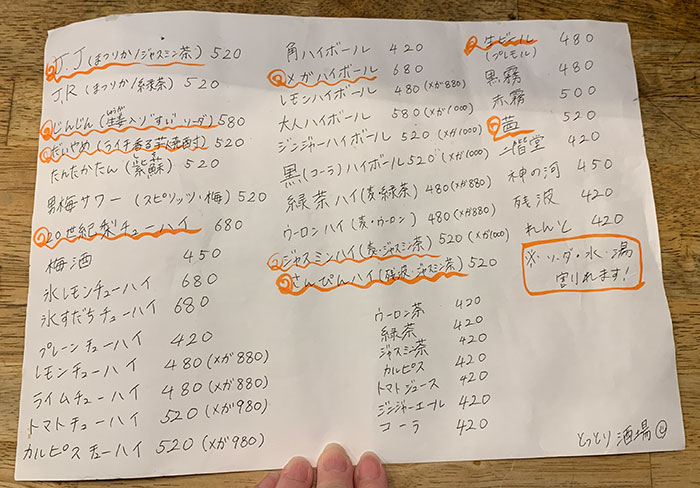 J.J (まつりか/ジャスミン茶) 520
J.R (まつりか/緑茶) 520
じんじん (生姜入りすぎいソーダ) 580
だいやめ (ライチ香る芋焼酎) 520
たんたかたん (紫蘇) 520
しそ
男梅サワー (スピリッツ・梅) 520
20世紀梨チューハイ 680
梅酒 450
氷レモンチューハイ 680
氷すだちチューハイ 680
プレーンチューハイ 420
レモンチューハイ 480 (メガ880)
ライムチューハイ 480 (メガ880)
トマトチューハイ 520 (メガ980)
カルピスチューハイ 520 (メガ980)
角ハイボール 420
メガハイボール 680
レモンハイボール 480 (メガ880)
大人ハイボール 580 (メガ1000)
ジンジャーハイボール 520 (メガ1000)
黒(コーラ)ハイボール 520 (メガ1000)
緑茶ハイ (麦・緑茶) 480 (メガ880)
ウーロンハイ (麦・ウーロン) 480 (メガ880)
ジャスミンハイ (麦・ジャスミン茶) 520 (メガ1000)
さんぴんハイ (残波・ジャスミン茶) 520
ウーロン茶 420
緑茶 420
ジャスミン茶 420
カルピス 420
トマトジュース 420
ジンジャーエール 420
コーラ 420
生ビール 480
(プレモル)
黒霧 480
赤霧 500
茜 520
二階堂 420
神の河 450
残波 420
れんと 420
※ソーダ・水・湯
割れます!
とっとり酒場